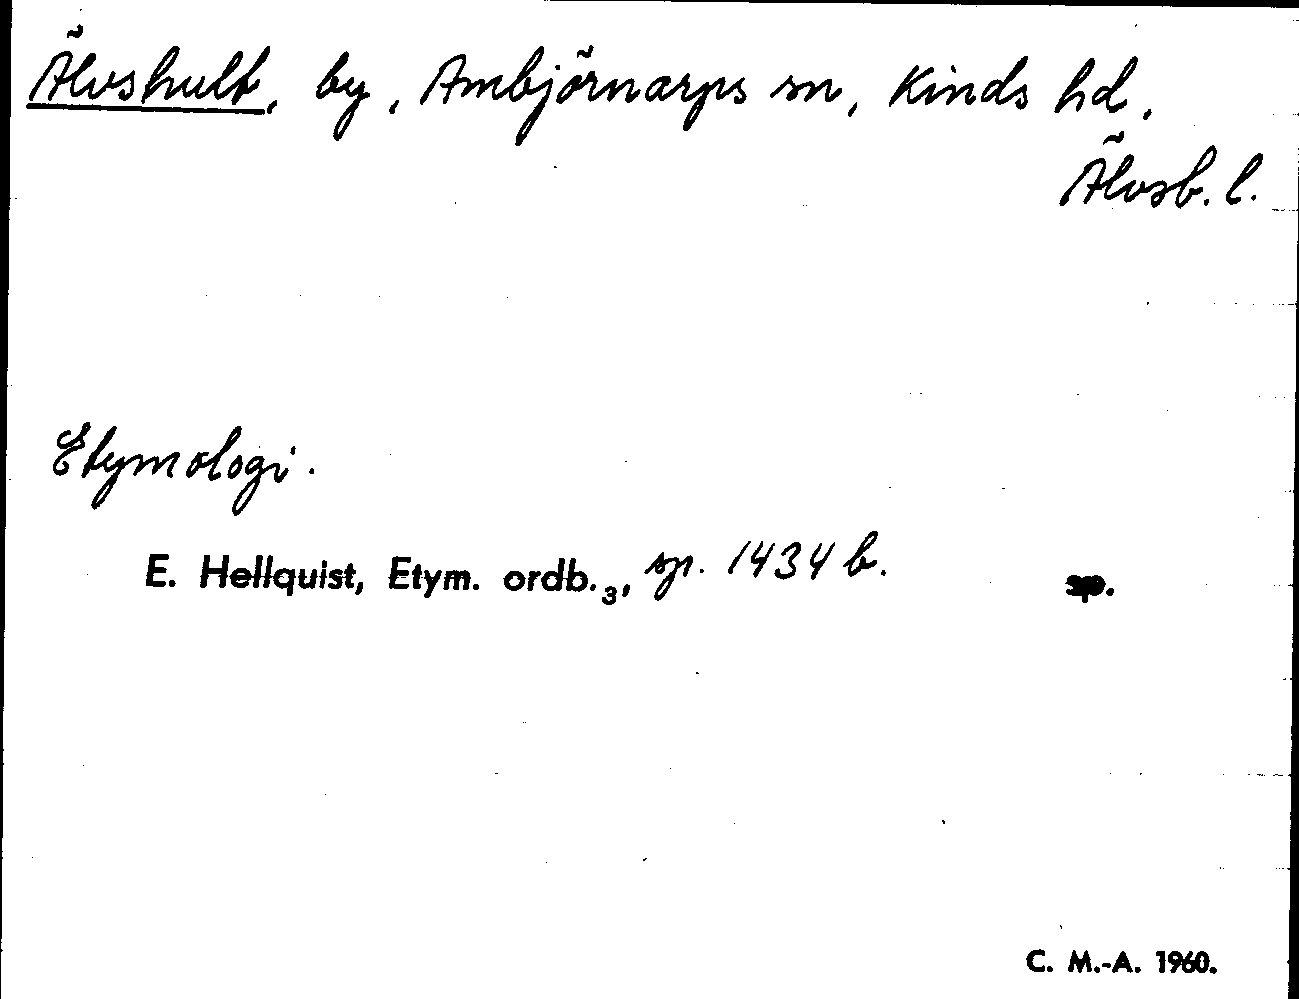 Älvshult, by, Ambjörnarps sn, Kinds hd,
Älvsb. l.
Etymologi.
E. Hellquist, Etym. ordb.₃, sp. 1434 b. sp.
C. M.-A. 1960.